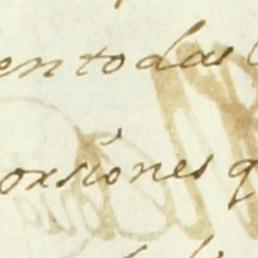 en todas
orsiones q